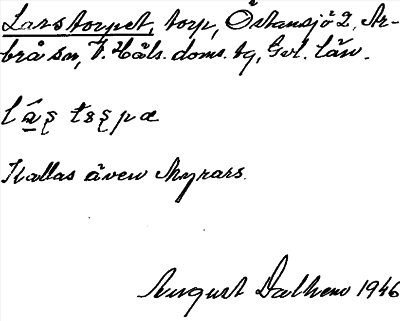 Larstorpet, torp, Östansjö 2, Ar-
brå sn, V. Häls. doms. tg, Gvl. län.
Kallas även Myrars.
August Dalhem 1946